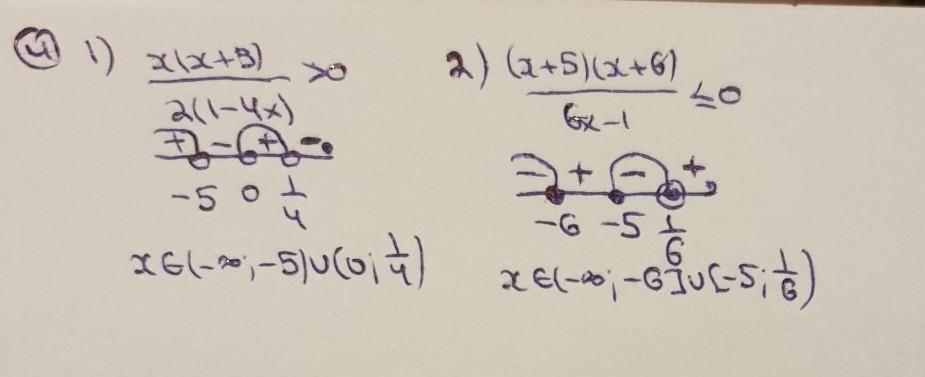 ④ 1) x(x+3)/2(1-4x) >0
+ - + -
-5 0 1/4
x∈(-∞; -5)∪(0; 1/4)
2) (x+5)(x+6)/6x-1 ≤0
- + - +
-6 -5 1/6
x∈(-∞; -6]∪[-5; 1/6)